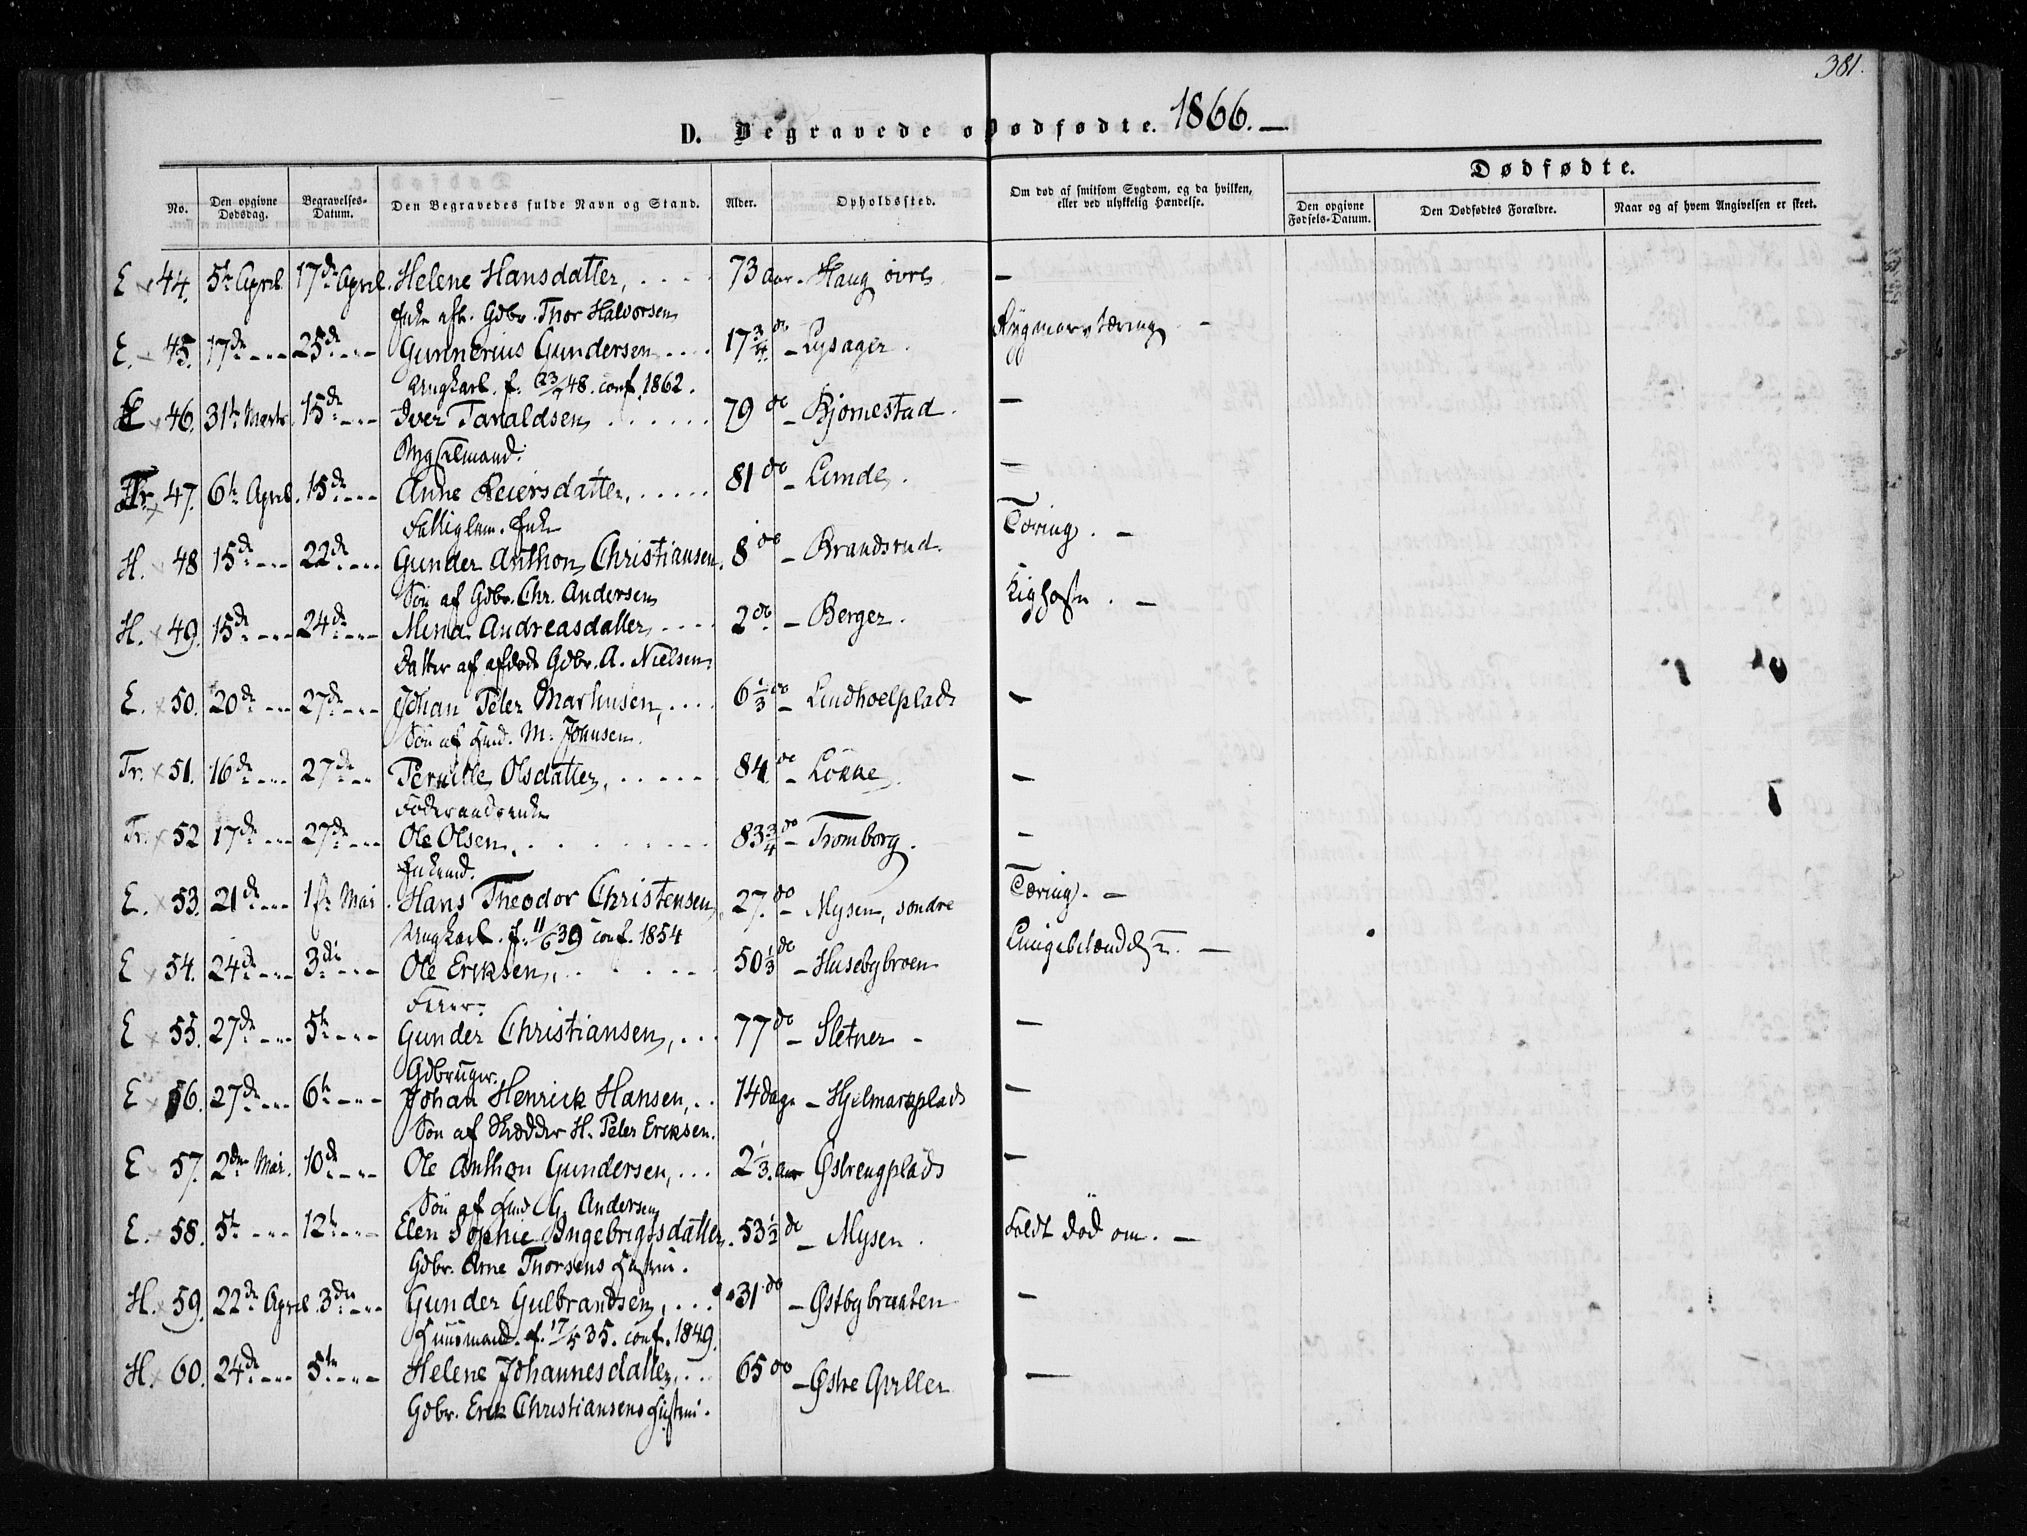 381.
D. Begravede o Dødfødte. 1866. —
Dødfødte.
No. Den opgivne Dødsdag. Begravelses-Datum. Den Begravedes fulde Navn og Stand. Alder. Opholdssted. Om død af smitsom Sygdom, og da hvilken, eller ved ulykkelig Hændelse. Den opgivne Fødsels-Datum. Den Dødfødtes Forældre. Naar og af hvem Angivelsen er skeet.
E × 44. 5te April 17de April. Helene Hansdatter, . . . . 73 aar - Haug øvre —
Enke eft. Gdbr. Thor Halvorsen
E. — 45. 17de - - - 25de - - - Gunnerius Gundersen . . . . 17 3/4 do - Lysager. Rygmarvstæring —
Ungkarl. f. 48. conf. 1862.
E × 46. 31te Marts 15de - - - Iver Taraldsen . . . . . . 79 do - Bjørnestad. —
Bygselmand.
Tr. × 47. 6te April. 15de - - - Anne Reiersdatter, . . . . . 81 do - Lunde. —
Fattiglem. Enke
H. × 48 15de - - - 22de - - - Gunder Anthon Christiansen. 8 do - Brandsrud. Tæring. —
Søn af Gdbr. Chr. Andersen
H. × 49. 15de - - - 24de - - - Mina Andreasdatter, . . . . 2 do - Berger. Kighoste. —
Datter af afdøde Gdbr. A. Nielsen
E. × 50. 20de - - - 27de - - - Johan Peter Markusen, . . . . 6 1/3 do - Lindhoelplads —
Søn af Huusmd. M. Johnsen.
Tr. × 51. 16de - - - 27de - - - Pernille Olsdatter, . . . . . 84 do - Løkke. —
Føderaadsenke
Tr. × 52 17de - - - 27de - - - Ole Olsen. . . . . . . . . 83 3/4 do - Tromborg. —
Enkemd.
E. × 53. 21de - - - 1ste Mai. Hans Theodor Christensen, 27. do - Mysen, søndre Tæring. —
Ungkarl. f. 11/6 39 conf. 1854
E × 54. 24de - - - 3die - - - Ole Eriksen, . . . . . . 50 1/3 do - Husebybroen Lungebetændelse. —
E × 55. 27de - - - 5te - - - Gunder Christiansen, . . . 77 do - Sletner - —
Gdbruger.
E × 56. 27de - - - 6te - - - Johan Henrick Hansen, . . 14 dage - Hjelmarkplads —
Søn af Skrædder H. Peter Eriksen.
E × 57. 2den Mai. 10de - - - Ole Anthon Gundersen, . . . 2 1/3. aar Østrengplads —
Søn af Huusmd G. Andersen
E. × 58. 5te - - - 12te - - - Elen Sophie Ingebrigtsdatter. 53 1/2 do - Mysen. Faldt død om. —
Gdbr. Arne Thorsens Hustru.
H. × 59. 22de April. 3die - - - Gunder Gulbrandsen, . . . 31 do - Østbybraaten —
Huusmand. f. 17/5 35. conf. 1849.
H. × 60. 24de - - - 5te - - - Helene Johannesdatter, . . . 65 do - Østre Gviller —
Gdbr. Erik Christiansens Hustru.